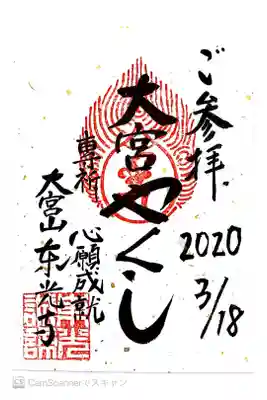 ご参拝
2020
3/18
大宮やくし
専祈
心願成就
大宮山东光寺
CamScannerでスキャン